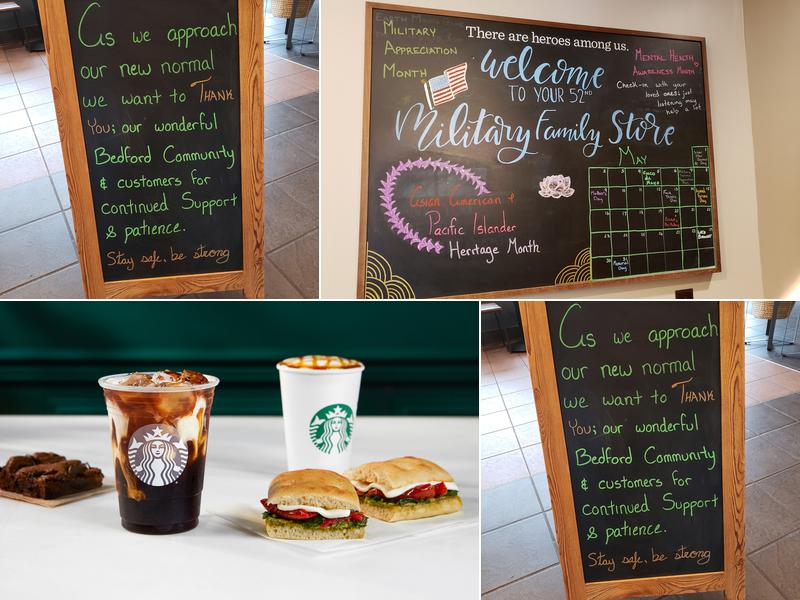 As we approach
our new normal
we want to THANK
You; our wonderful
Bedford Community
& customers for
continued Support
& patience.
Stay safe, be strong
MILITARY
APPRECIATION
MONTH
There are heroes among us.
welcome
TO YOUR 52ND
Military Family Store
MENTAL HEALTH
AWARENESS MONTH
Check-in with your
loved ones; just
listening may
help a lot
Asian American &
Pacific Islander
Heritage Month
MAY
Cinco
de
Mayo
Mother's
Day
Memorial
Day
As we approach
our new normal
we want to THANK
You; our wonderful
Bedford Community
& customers for
continued Support
& patience.
Stay safe, be strong